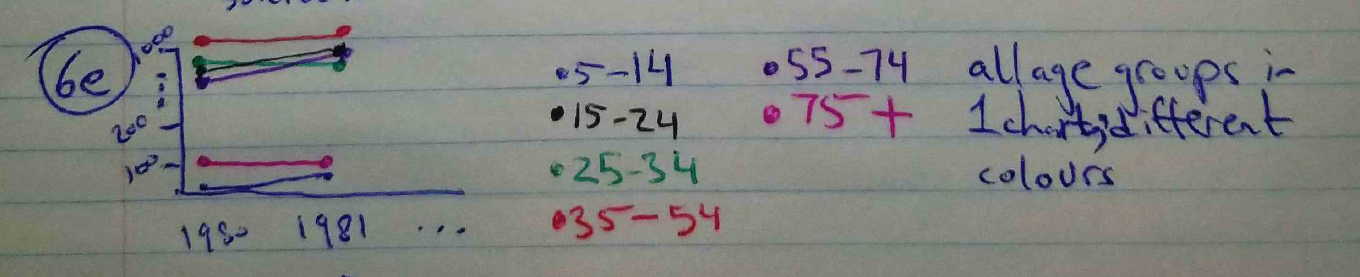 6e
1000
200
100
1980 1981 ...
•5-14
•15-24
•25-34
•35-54
•55-74
•75+
all age groups in
1 chart; different
colours